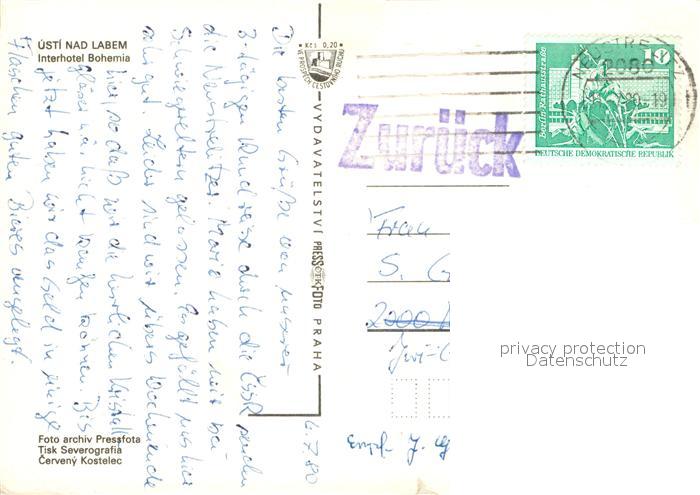 ÚSTÍ NAD LABEM
Interhotel Bohemia
Die besten Grüße von unserer
3-tägigen Rundreise durch die ČSSR senden
die Neustrelitzer. Mario haben wir bei
Schwiegereltern gelassen. Es gefällt uns hier
sehr gut. Leider sind wir übers Wochenende
hier, so daß wir die herrlichen Kristall-
gläser nicht kaufen können. Bis
jetzt haben wir das Geld in einige
Flaschen guten Bieres angelegt.
6.7.80
Foto archiv Pressfota
Tisk Severografia
Červený Kostelec
Kčs 0,20
VE PROSPĚCH CESTOVNÍHO RUCHU
VYDAVATELSTVÍ PRESSFOTO PRAHA
ČTK
Zurück
NEUSTRELITZ
2080
10
Berlin, Rathausstraße
DEUTSCHE DEMOKRATISCHE REPUBLIK
Frau
S.
2000
privacy protection
Datenschutz